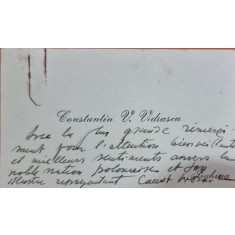 Constantin V. Vidrascu
Avec la plus grande remerci-
ment pour l'attention bienveillante
et meilleurs sentiments envers la
noble nation polonaise et son
illustre représentant